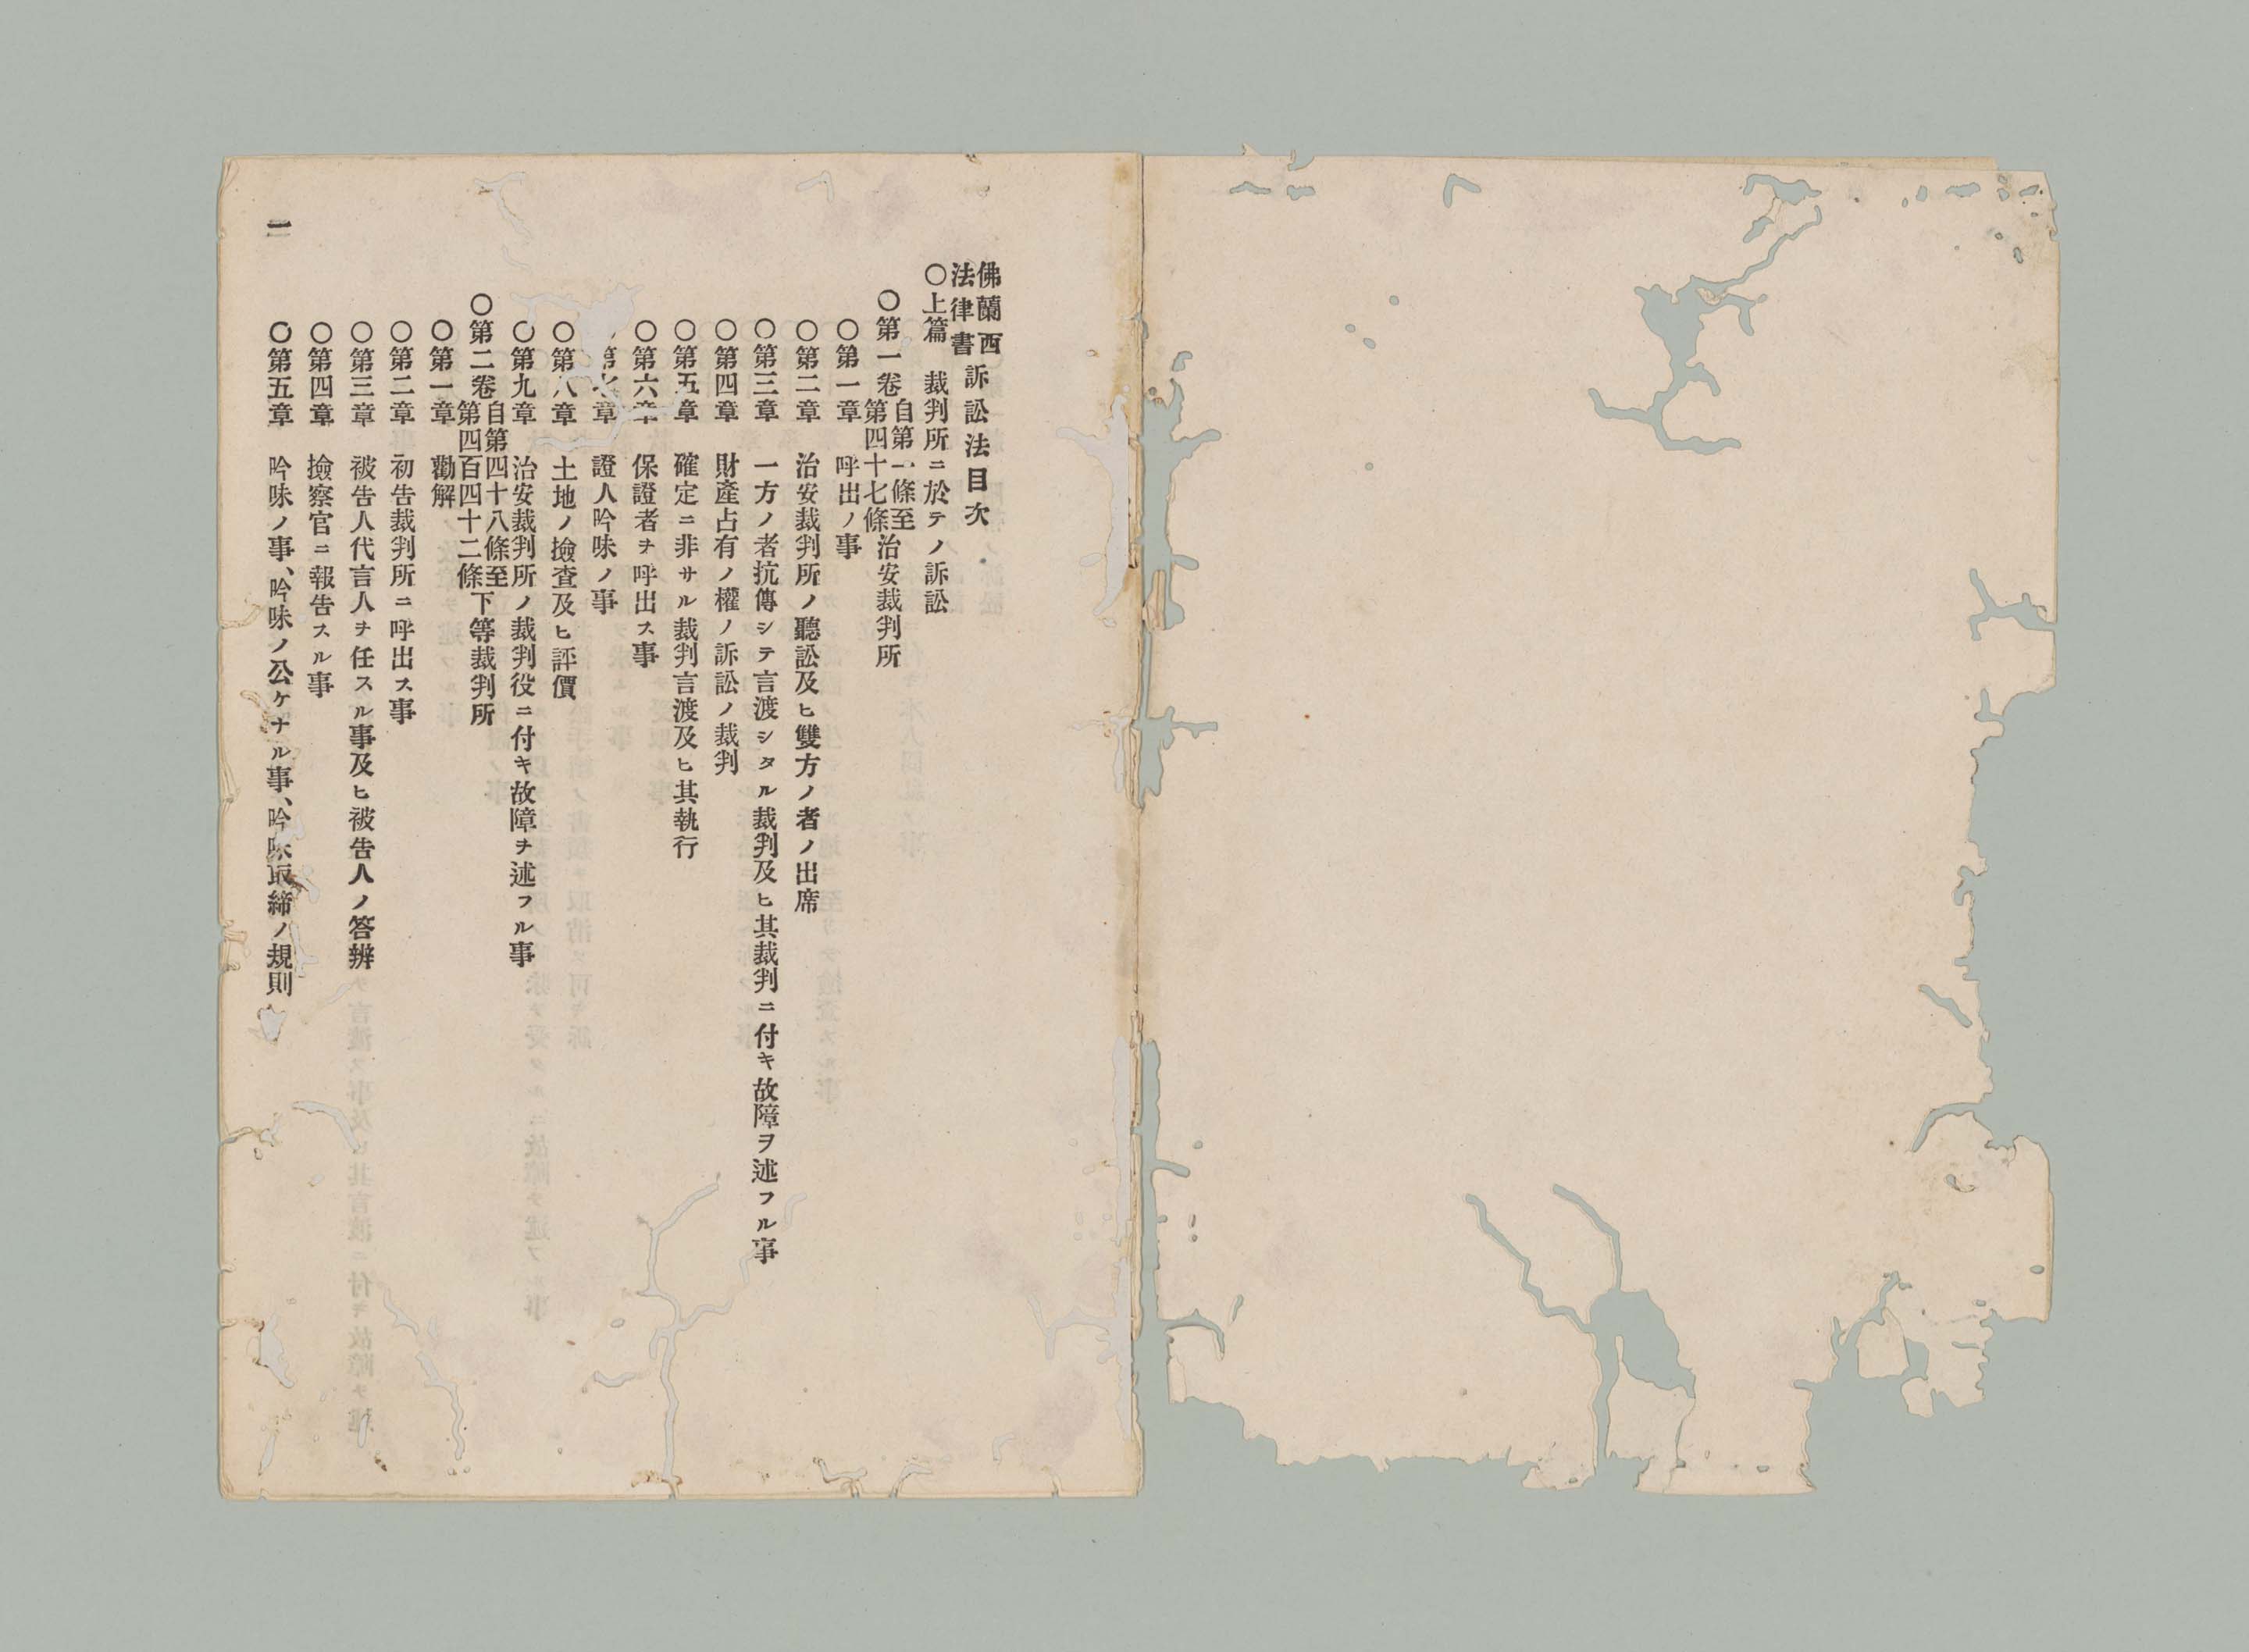 佛蘭西法律書 訴訟法目次
〇上篇 裁判所ニ於テノ訴訟
〇第一卷 自第一條至第四十七條 治安裁判所
〇第一章 呼出ノ事
〇第二章 治安裁判所ノ聽訟及ヒ雙方ノ者ノ出席
〇第三章 一方ノ者抗傳シテ言渡シタル裁判及ヒ其裁判ニ付キ故障ヲ述フル事
〇第四章 財產占有ノ權ノ訴訟ノ裁判
〇第五章 確定ニ非サル裁判言渡及ヒ其執行
〇第六章 保證者ヲ呼出ス事
第七章 證人吟味ノ事
〇第八章 土地ノ撿査及ヒ評價
〇第九章 治安裁判所ノ裁判役ニ付キ故障ヲ述フル事
〇第二卷 自第四十八條至第四百四十二條 下等裁判所
〇第一章 勸解
〇第二章 初告裁判所ニ呼出ス事
〇第三章 被告人代言人ヲ任スル事及ヒ被告人ノ答辨
〇第四章 撿察官ニ報告スル事
〇第五章 吟味ノ事、吟味ノ公ケナル事、吟味取締ノ規則
一